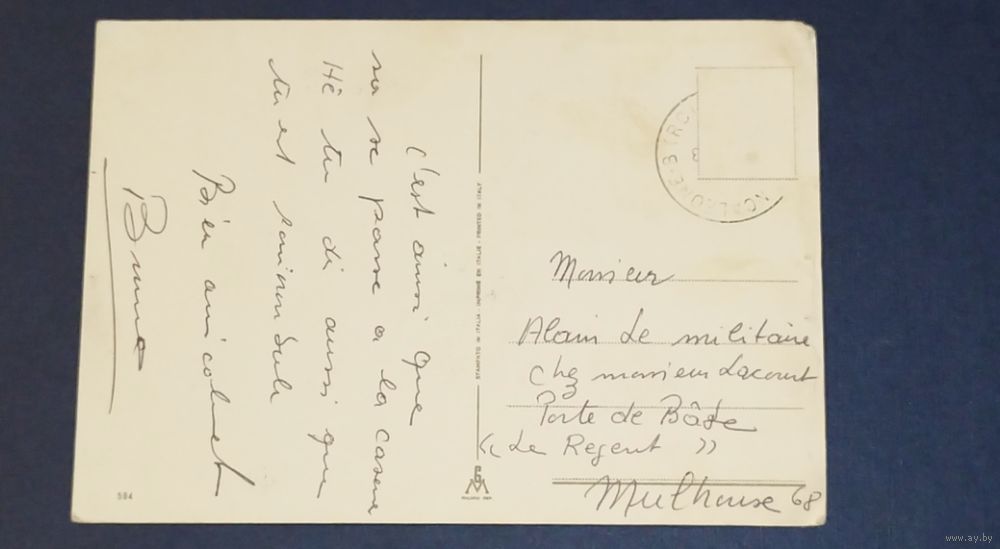 c'est ainsi que
sa se passe a la caserne
Hè tu di aussi que
tu est
Bien amicalment
Bruno
584
STAMPATO IN ITALIA - IMPRIMÉ EN ITALIE - PRINTED IN ITALY
Monsieur
Alain Le militaire
chez monsieur Lacourt
Porte de Bâle
« Le Regent »
Mulhouse 68
www.ay.by